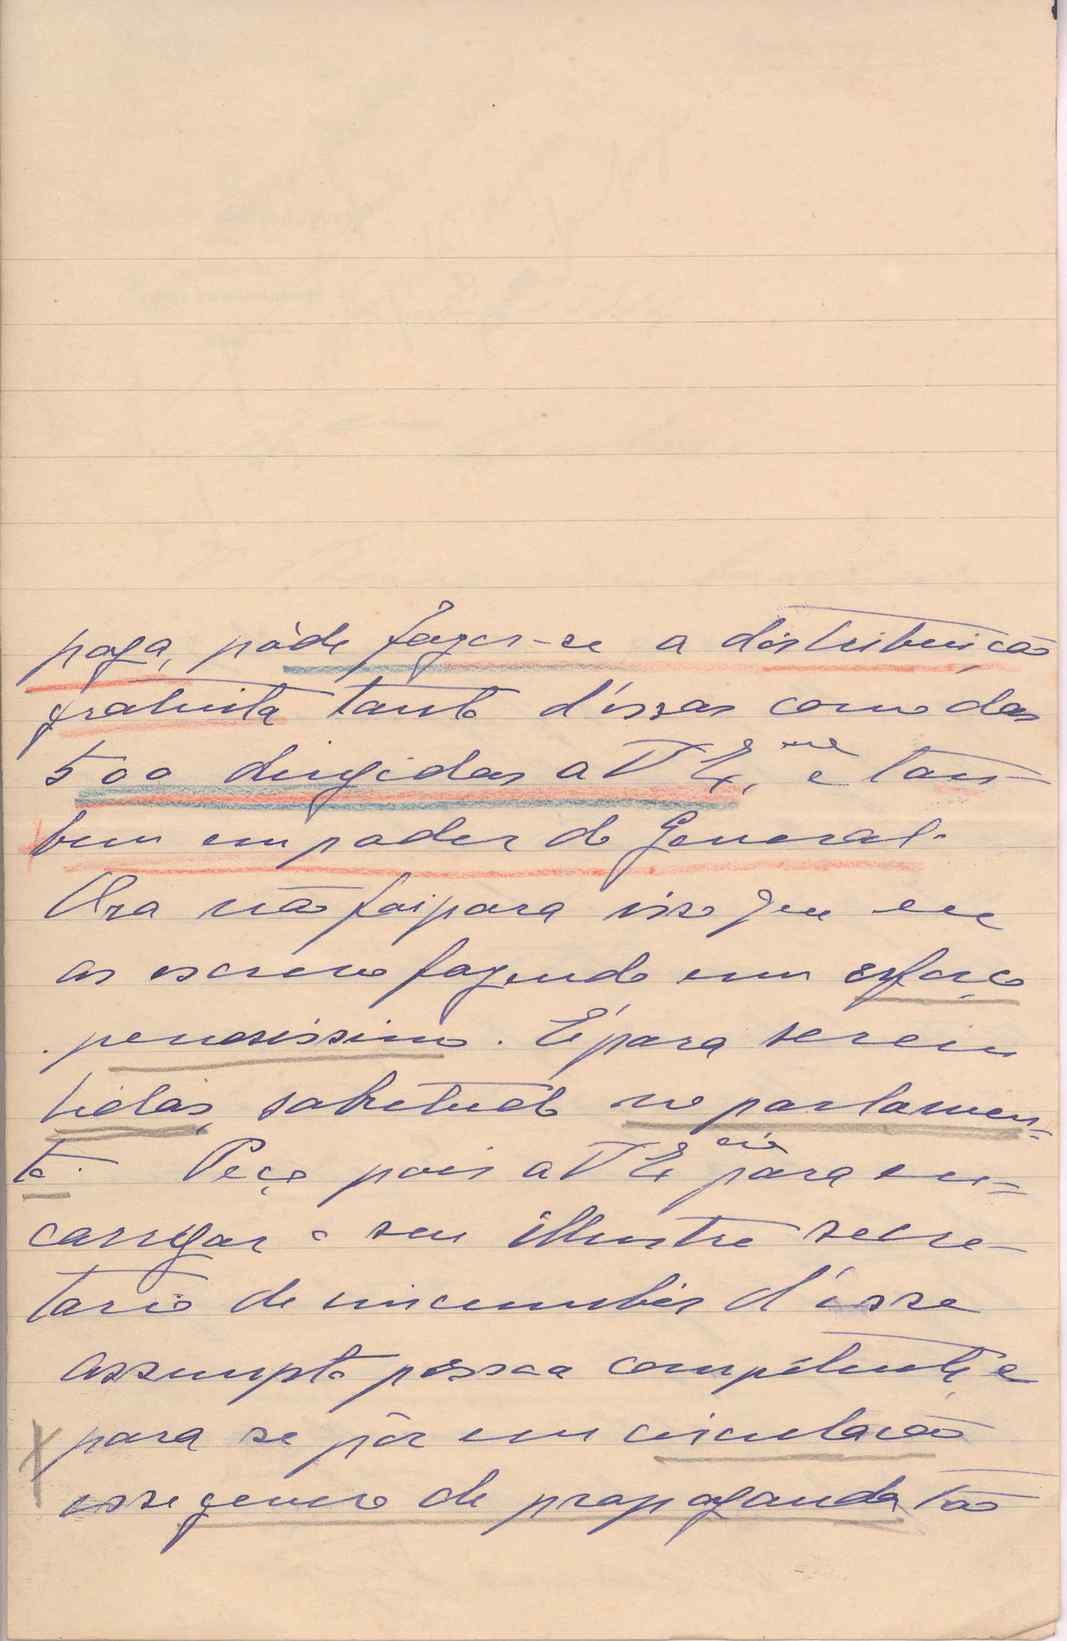 paga, póde fazer-se a distribuição
gratuita tanto d'essas como das
500 dirigidas a V Ex.cia e tam-
bem em poder do General.
Ora não foi para isso que eu
as escrevo fazendo um esforço
penosissimo. É para serem
lidas, sobretudo no parlamen-
to. Peço pois a V Ex cia para en-
carregar o seu illustre secre-
tario de incumbir d'esse
assumpto pessoa competente e
para se pôr em circulação
esse genero de propaganda tão